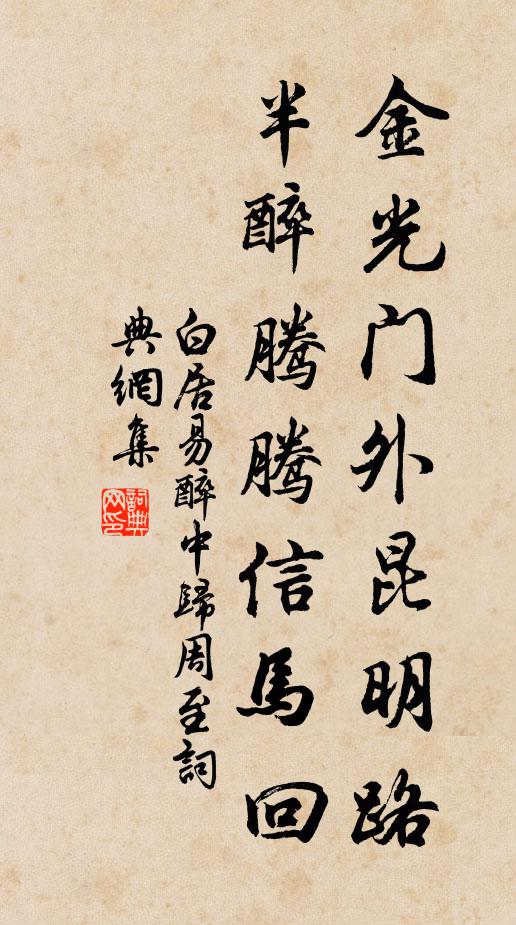 金光门外昆明路
半醉腾腾信马回
白居易醉中歸周至詞
典網集
詞典
网印